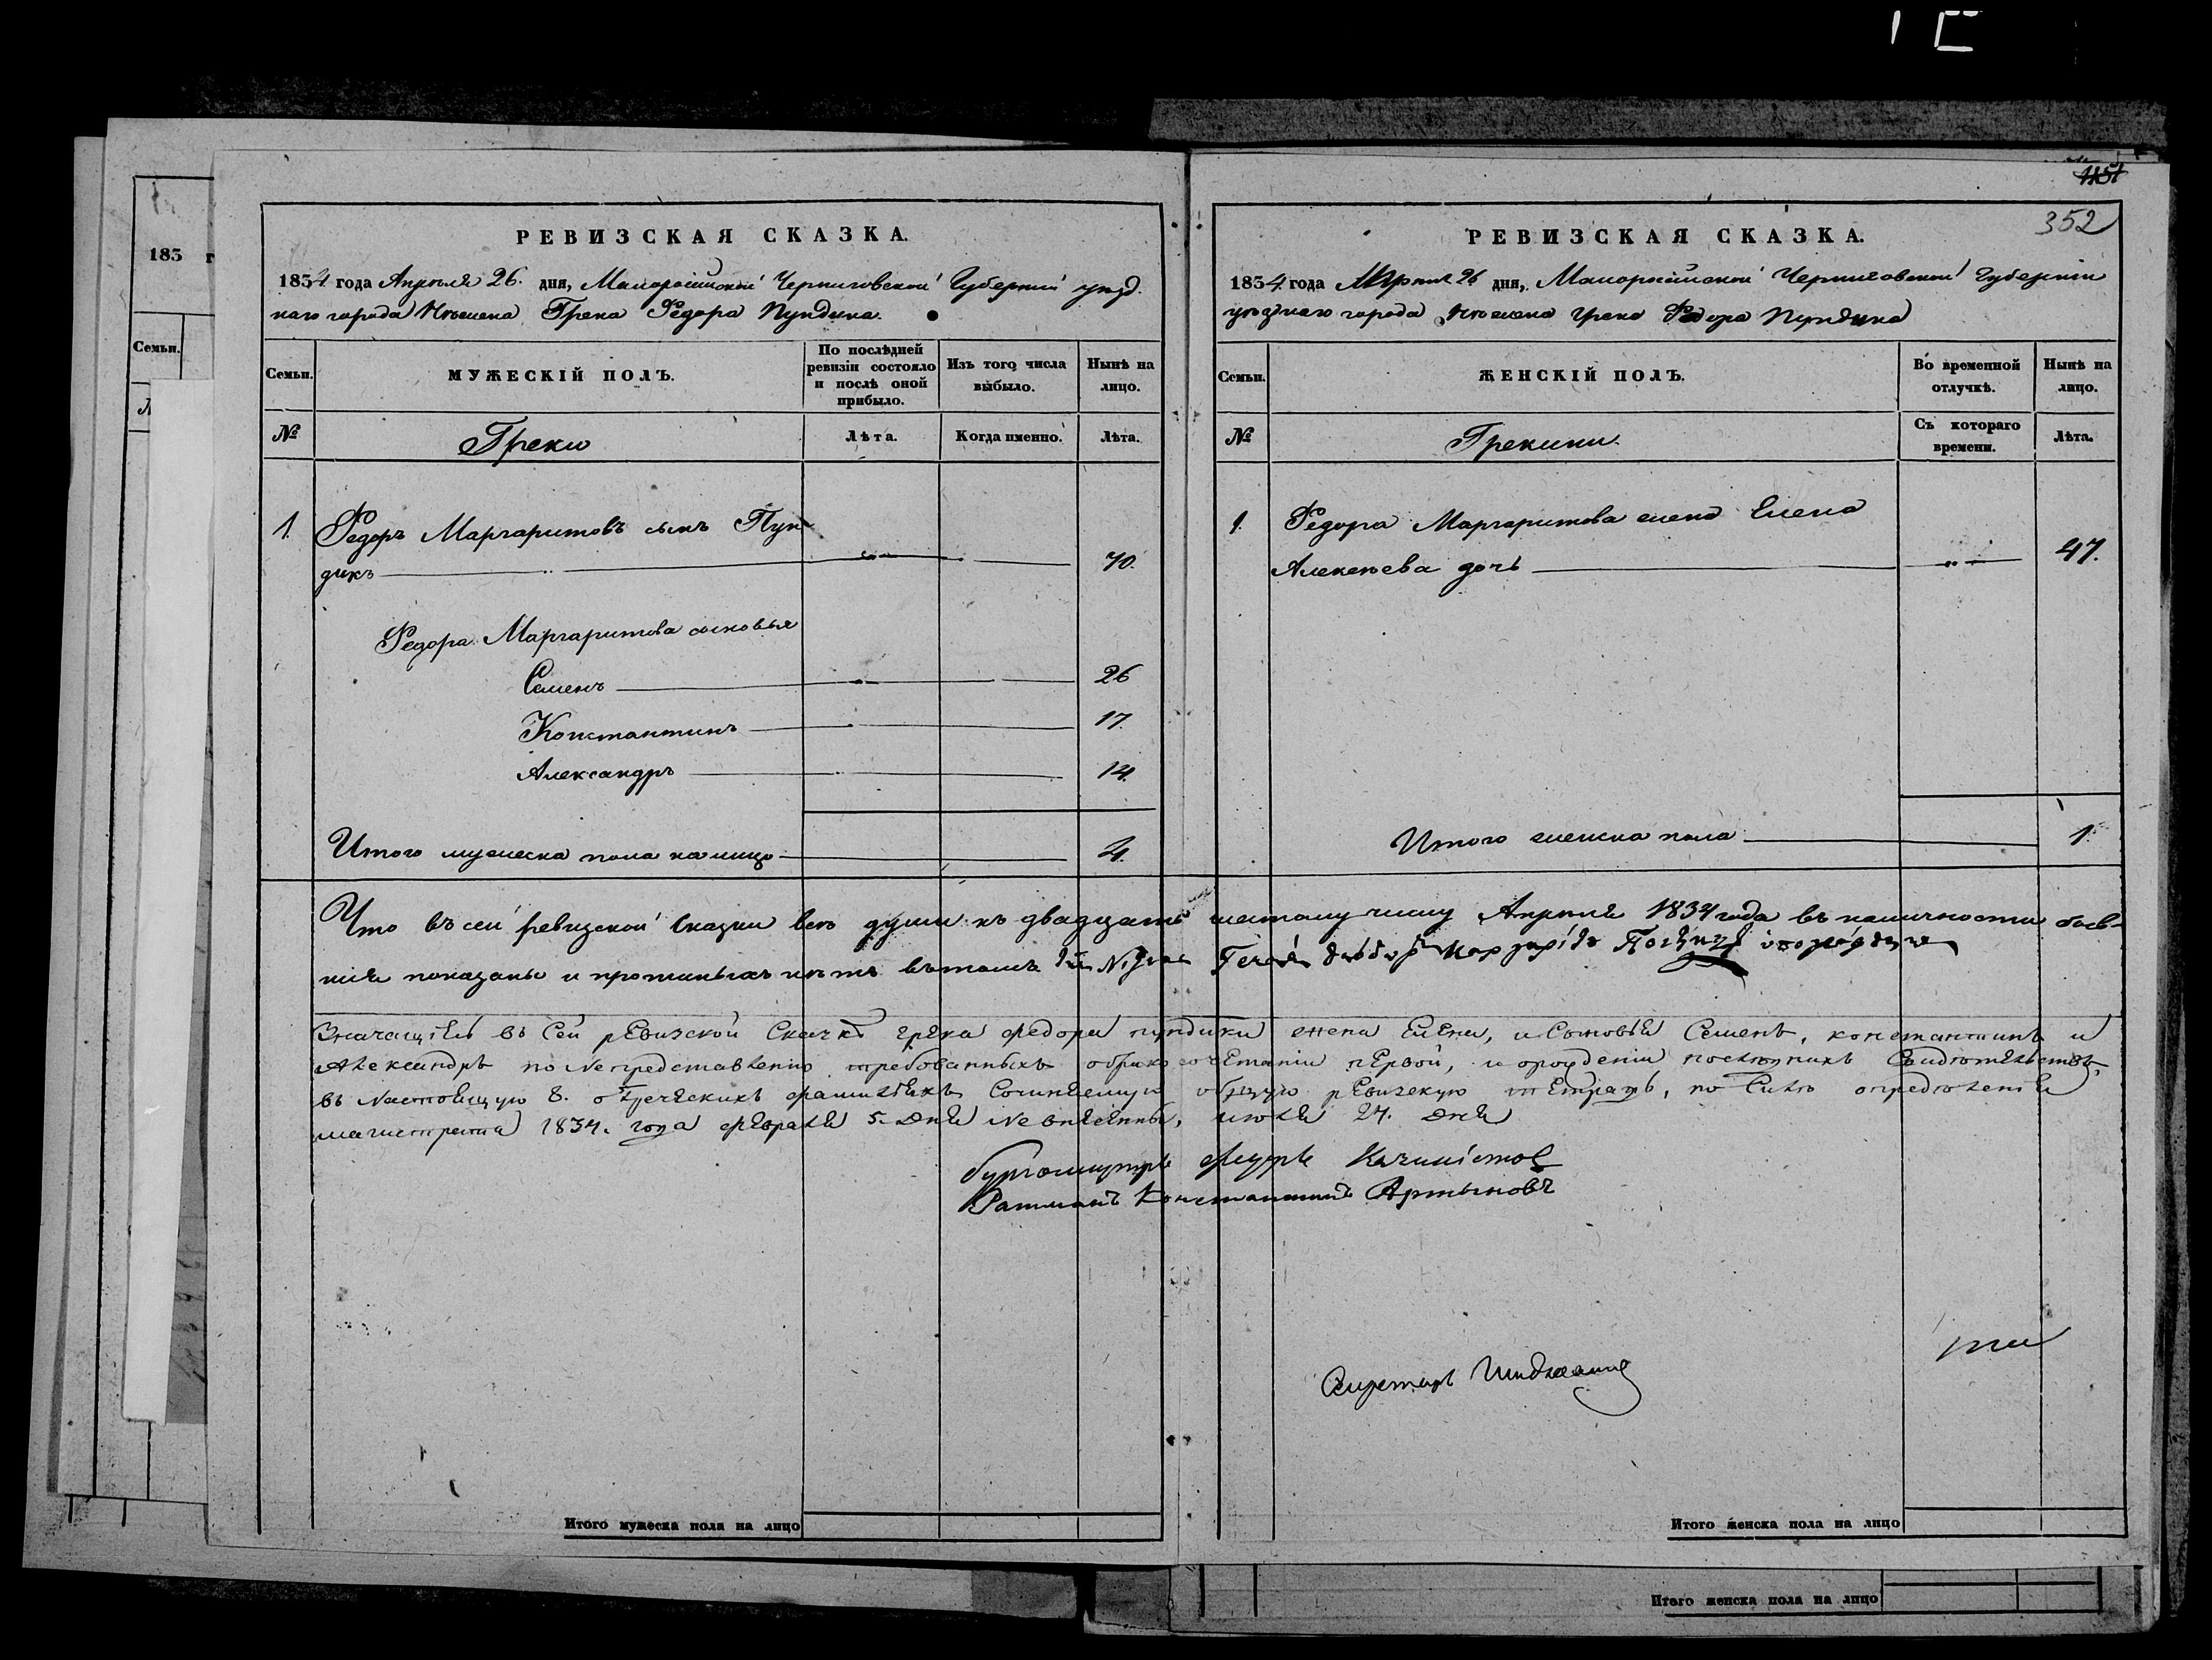 1151
352
183 г
Семьи.
РЕВИЗСКАЯ СКАЗКА.
1834 года Апреля 26. дня, Малоросійской Черниговской Губерніи уезд
наго города Нежена Грека Федора Пундика.
Семьи.
МУЖЕСКІЙ ПОЛЪ.
По послѣдней ревизіи состояло и послѣ оной прибыло.
Изъ того числа выбыло.
Нынѣ на лицо.
№
Греки
Лѣта.
Когда именно.
Лѣта.
1. Федоръ Маргаритовъ сынъ Пун
дикъ 70.
Федора Маргаритова сыновья
Семенъ 26
Константинъ 17.
Александръ 14.
Итого мужеска пола налицо 4.
РЕВИЗСКАЯ СКАЗКА.
1834 года Апреля 26 дня, Малоросійской Черниговской Губерніи
уезднаго города Нежена Грека Федора Пундика
Семьи.
ЖЕНСКІЙ ПОЛЪ.
Во временной отлучкѣ.
Нынѣ на лицо.
№
Грекини.
Съ котораго времени.
Лѣта.
1. Федора Маргаритова жена Елена
Алексеева дочь 47.
Итого женска пола 1.
Что въ сей ревизской сказки все души къ двадцать шестому числу Апреля 1834 года въ наличности бывшія показаны и прописныхъ нетъ въ томъ
Значащіеся въ сей ревизской сказки грека федора пундики жена Елена, и сыновья Семенъ, константинъ и
Александръ по непредставленію требованныхъ о бракосочетаніи первой, и о рожденіи последнихъ свидетельствъ,
въ настоящую 8. о греческихъ фамиліяхъ сочиняемую общую ревизскую тетрадь, по силе определенія
магистрата 1834. года февраля 5. дня не внесенны, июля 24. дня
бургомистръ
Ратманъ Константинъ Артыновъ
Секретарь
Итого мужеска пола на лицо
Итого женска пола на лицо
Итого женска пола на лицо